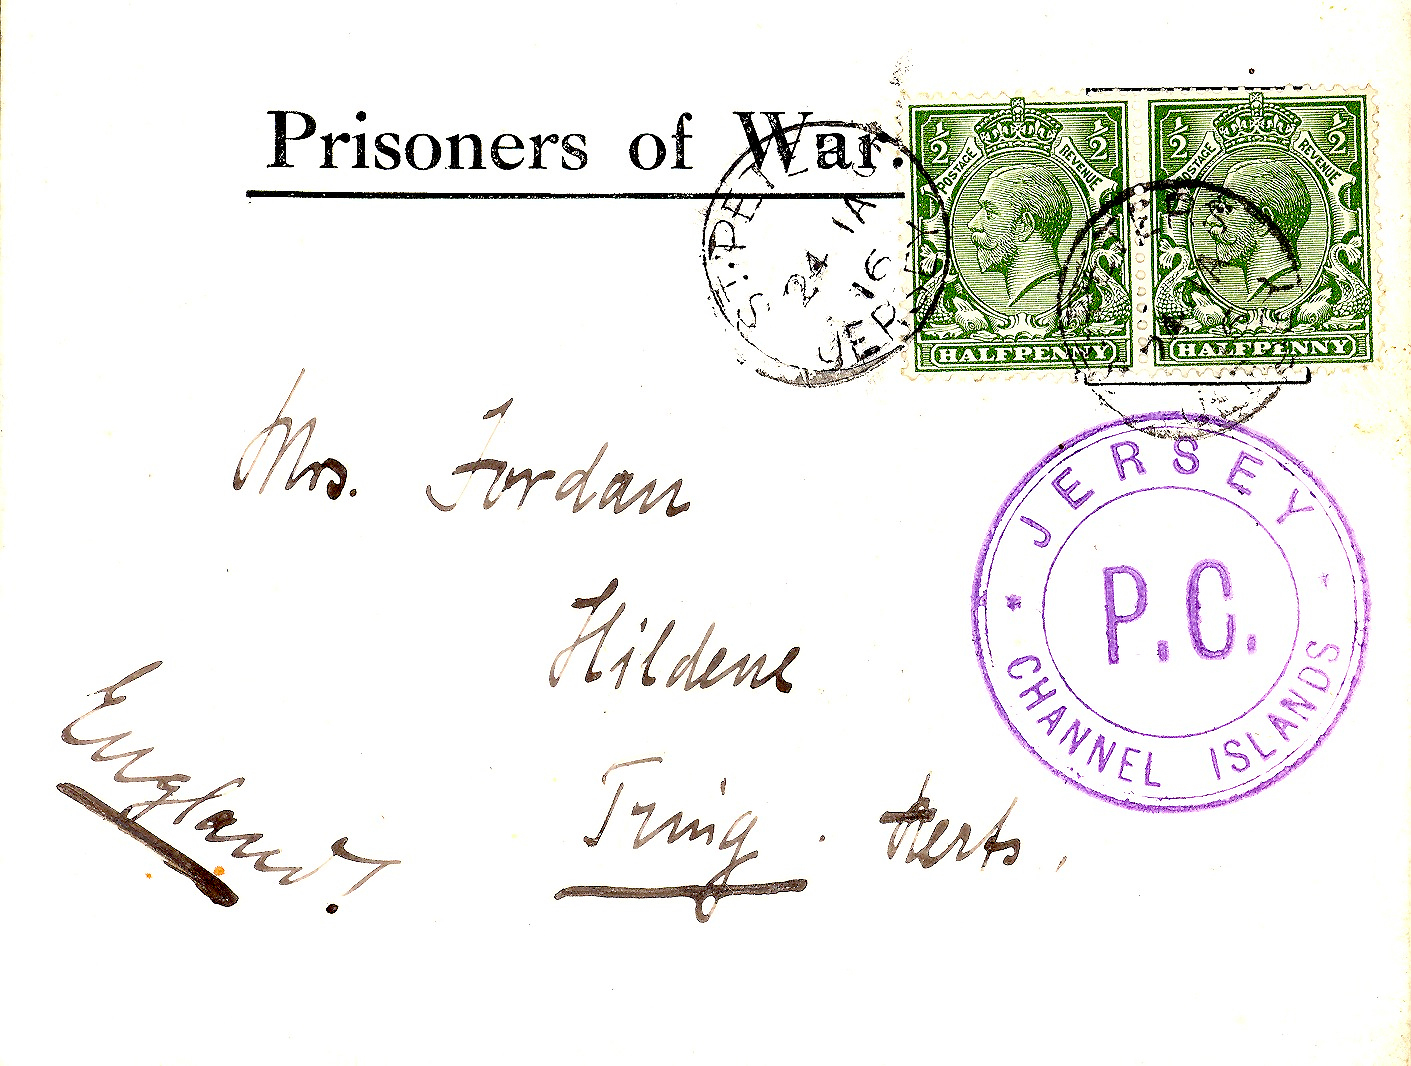 Prisoners of War.
½ ½
POSTAGE REVENUE
HALFPENNY
½ ½
POSTAGE REVENUE
HALFPENNY
ST. PETERS
24 JA
16
JERSEY
JERSEY
P.C.
CHANNEL ISLANDS
Mrs. Jordan
Hildene
Tring. Herts.
England!